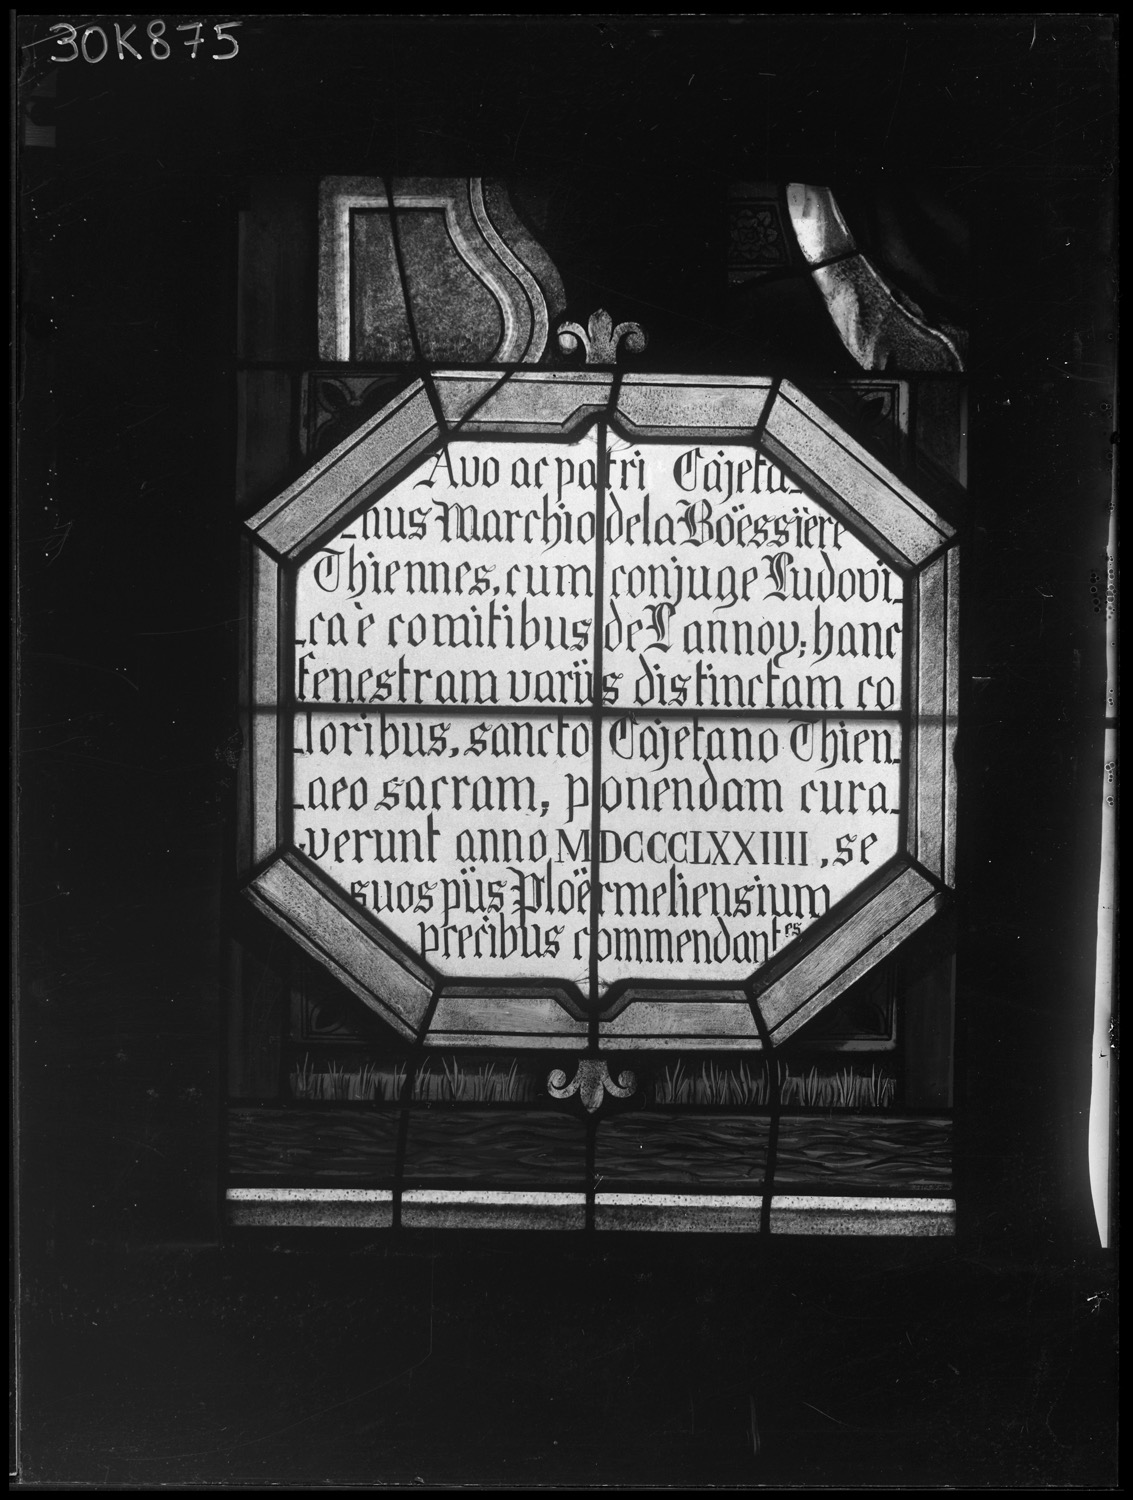 30K875
Avo ac patri Cajeta_
_nus Marchio de la Boëssière
Thiennes, cum conjuge Ludovi_
_caè comitibus de Lannoy; hanc
fenestram variis distinctam co
_loribus, sancto Cajetano Thien_
_aeo sacram, ponendam cura_
_verunt anno MDCCCLXXIIII, se
suos piis Ploërmeliensium
precibus commendantes